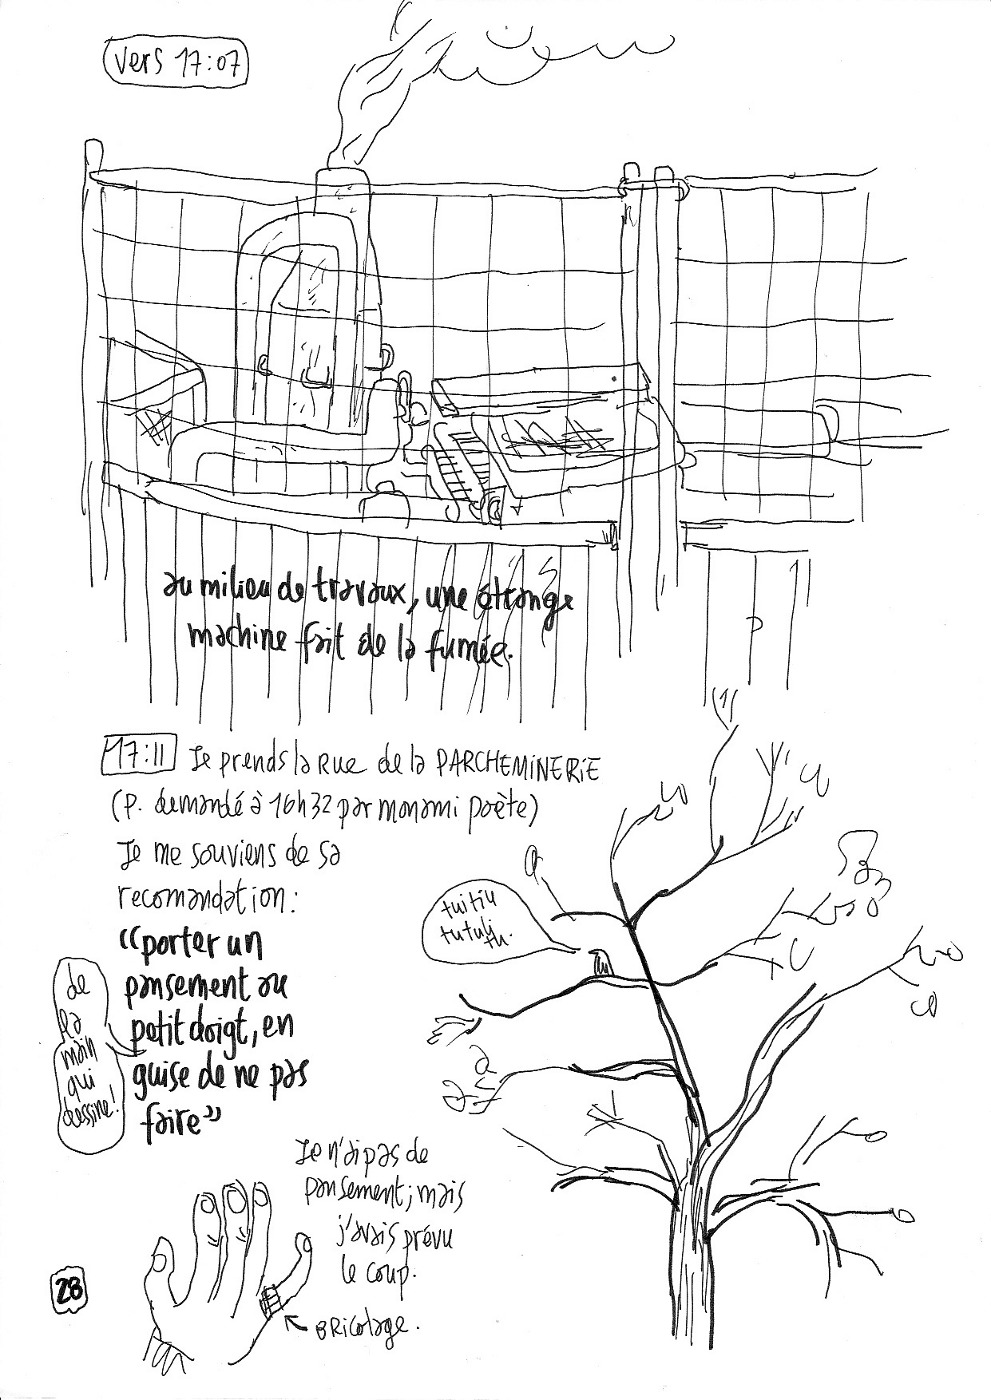 vers 17:07
au milieu de travaux, une étrange
machine fait de la fumée.
17:11 Je prends la Rue de la PARCHEMINERIE
(P. demandé à 16h32 par mon ami poète)
Je me souviens de sa
recomandation:
“porter un
pansement au
petit doigt, en
guise de ne pas
faire”
de
la
main
qui
dessine!
tuitiu
tutuli
tu.
Je n'ai pas de
pansement; mais
j'avais prévu
le coup.
BRicolage.
28